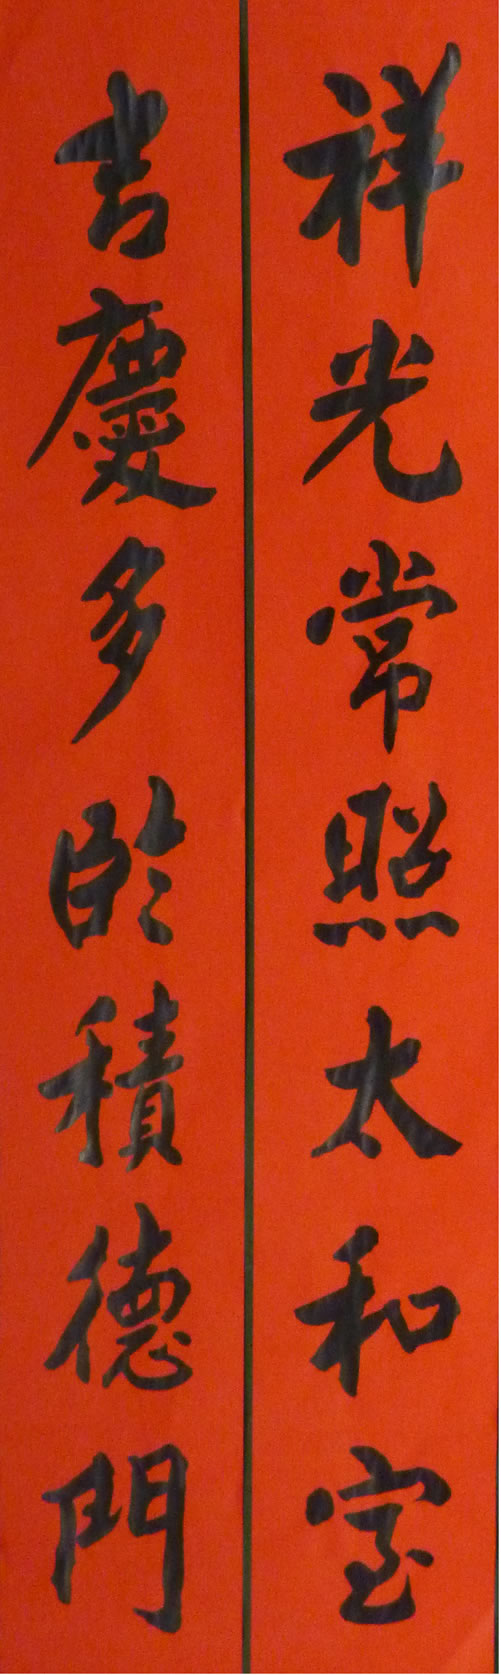 祥光常照太和室
吉慶多臨積德門